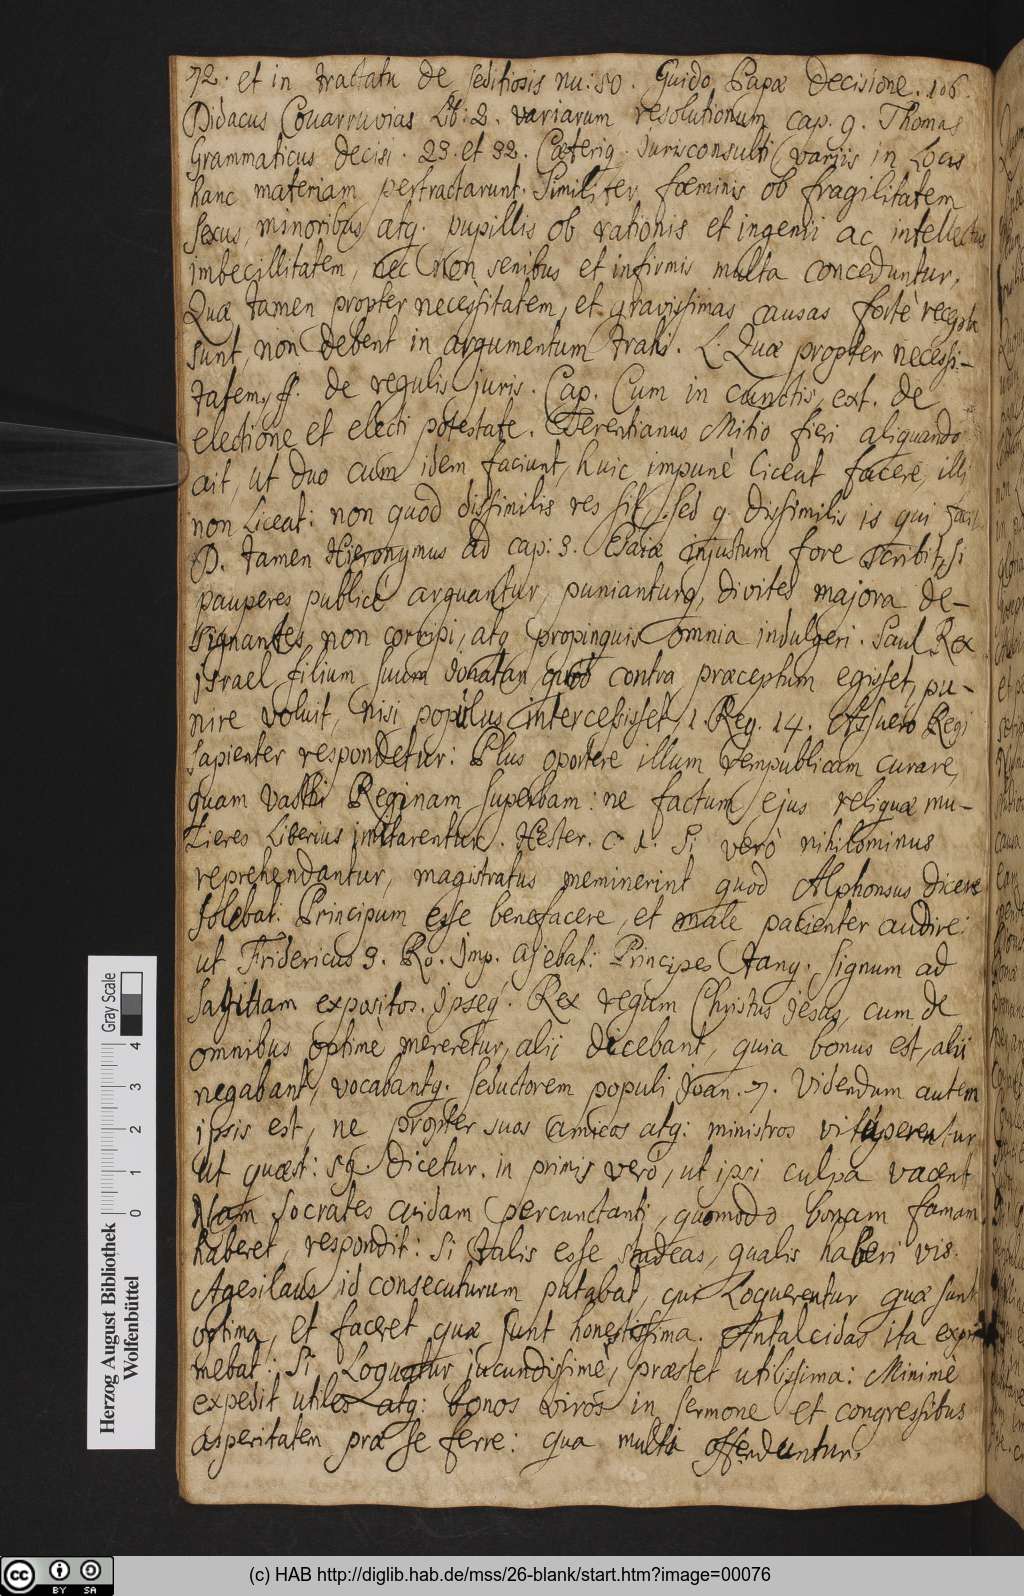 72. et in tractatu de seditiosis nu: 80. Guido Papæ decisione. 106.
Didacus Couarruvias Lib: 2. variarum resolutionum cap. 9. Thomas
Grammaticus decisi. 23. et 32. Cæteriq. Jurisconsulti variis in Locis
hanc materiam pertractarunt. Similiter fœminis ob fragilitatem
sexus, minoribus atq. pupillis ob rationis et ingenii ac intellectus
imbecillitatem, nec non senibus et infirmis multa conceduntur.
Quæ tamen propter necessitatem, et gravissimas causas fortè recepta
sunt, non debent in argumentum trahi. L. Quæ propter necessi-
tatem, ff. de regulis juris. Cap. Cum in cunctis, ext. de
electione et electi potestate. Terentianus Mitio fieri aliquando
ait, ut duo cum idem faciunt, huic impunè liceat facere, illi
non Liceat: non quod dissimilis res sit, sed q. dissimilis is qui facit
D. tamen Hieronymus ad cap: 3. Esaiæ injustum fore scribit, si
pauperes publicè arguantur, punianturq, divites majora de-
signantes, non corripi, atq propinquis omnia indulgeri. Saul Rex
israel filium suum Jonatan quod contra præceptum egisset, pu-
nire voluit, nisi populus intercessisset, 1. Reg. 14. Assuero Regi
sapienter respondetur: Plus oportere illum rempublicam curare,
quam Vasthi Reginam superbam: ne factum ejus reliquæ mu-
Lieres Liberius imitarentur. Hester. c 1. Si verò nihilominus
reprehendantur, magistratus meminerint quod Alphonsus dicere
solebat: Principum esse benefacere, et male patienter audire:
ut Fridericus 3. Ro. Imp. ajebat: Principes tanq. signum ad
sagittam expositos. Ipseq. Rex regum Christus Jesus, cum de
omnibus optimè mereretur, alii dicebant, quia bonus est, alii
negabant, vocabantq. seductorem populi Joan. 7. Videndum autem
ipsis est, ne propter suos amicos atq: ministros vituperentur
ut quæst: 59 dicetur. in primis verò, ut ipsi culpa vacent
Nam Socrates cuidam percunctanti, quomodo bonam famam
haberet, respondit: Si talis esse studeas, qualis haberi vis.
Agesilaus id consecuturum putabat, qui Loquerentur quæ sunt
optima, et faceret quæ sunt honestissima. Antalcidas ita expri
mebat: Si Loquatur jucundissimè, præstet utilissima: Minimè
expedit utiles atq: bonos virós in sermone et congressibus
asperitatem præ se ferre: qua multi offenduntur.
Gray Scale
0 1 2 3 4
Herzog August Bibliothek
Wolfenbüttel
cc BY SA
(c) HAB http://diglib.hab.de/mss/26-blank/start.htm?image=00076